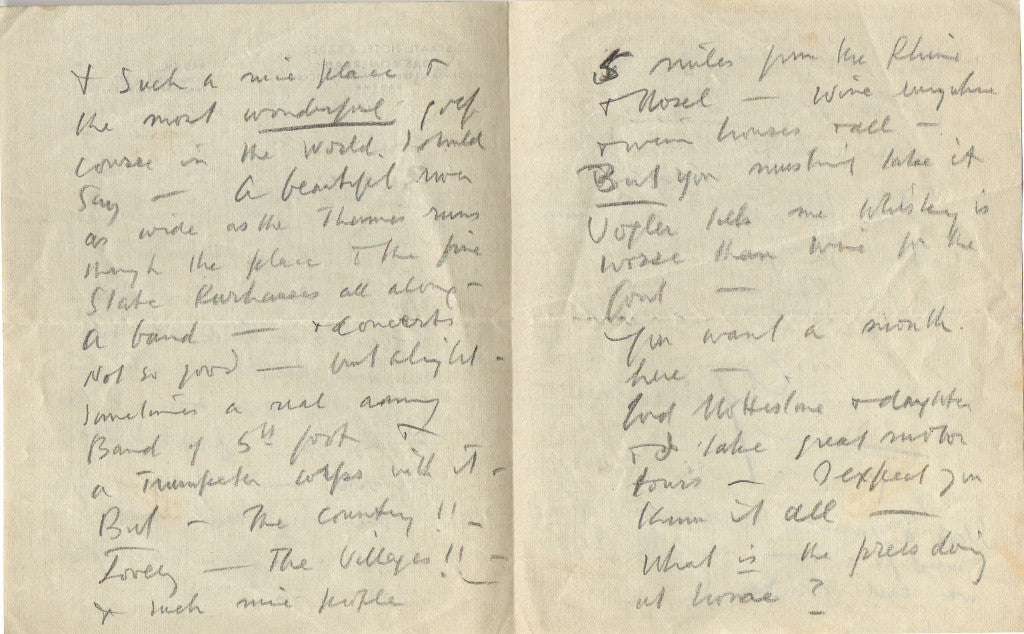 & Such a nice place &
the most wonderful golf
course in the world. I should
Say — A beautiful river
as wide as the Thames runs
through the place & the fine
State Kurhauses all along —
A band — & concerts
Not so good — but alright —
Sometimes a real army
Band of 5th foot &
a Trumpeter corps with it —
But — The country!! —
Lovely — The Villages!! —
& such nice people
5 miles from the Rhine
& Mosel — Wine everywhere
& wine houses & all —
But you mustn't take it
Vogler tells me Whiskey is
worse than wine for the
Gout —
You want a month
here —
Lord Mottistone & daughter
& I take great motor
tours — I expect you
Know it all —
What is the press doing
at home?